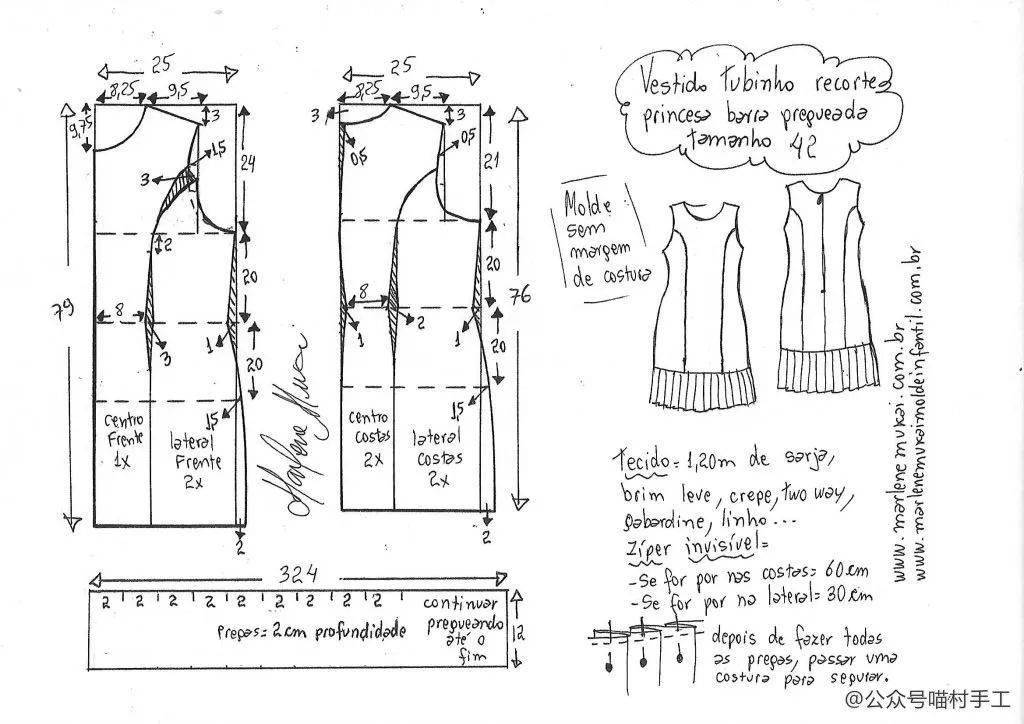 25
8,25
9,5
9,75
3
1,5
3
24
2
79
20
8
3
1
20
1,5
centro
Frente
1x
lateral
Frente
2x
2
25
8,25
9,5
3
3
0,5
0,5
21
76
20
8
2
1
1
20
centro
costas
2x
lateral
costas
2x
2
324
2 2 2 2 2 2 2 2 2
pregas = 2cm profundidade
continuar
pregueando
até o
fim
12
Vestido tubinho recortes
princesa barra pregueada
tamanho 42
Molde
sem
margem
de costura
www.marlenemukai.com.br
www.marlenemukaimoldeinfantil.com.br
Tecido = 1,20m de sarja,
brim leve, crepe, two way,
gabardine, linho...
Zíper invisível =
-Se for por nas costas = 60cm
-Se for por na lateral = 30cm
depois de fazer todas
as pregas, passar uma
costura para segurar.
@公众号喵村手工